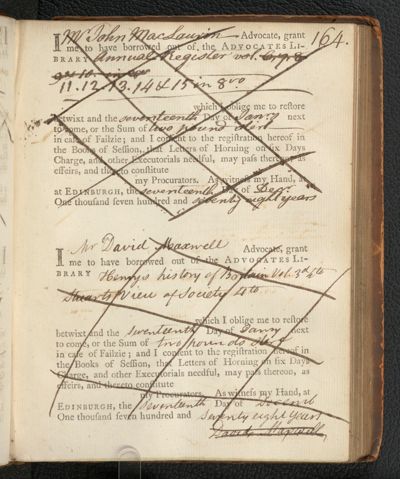 164.
I Mr John MacLaurin Advocate, grant
me to have borrowed out of the ADVOCATES LI-
BRARY Annual Register vol.
11. 12. 13. 14 & 15 in 8vo
which I oblige me to restore
betwixt and the seventeenth Day of Janry next
to come, or the Sum of two pound
in case of Failzie; and I consent to the registration hereof in
the Books of Session, that Letters of Horning on six Days
Charge, and other Executorials needful, may pass thereon as
effeirs, and thereto constitute
my Procurators. As witness my Hand, at
at EDINBURGH, the seventeenth Day of Decr.
One thousand seven hundred and seventy eight years
I Mr David Maxwell Advocate, grant
me to have borrowed out of the ADVOCATES LI-
BRARY Henrys history of Britain Vol. 3d 4to
Stuarts View of Society 4to
which I oblige me to restore
betwixt and the seventeenth Day of Janry next
to come, or the Sum of two pounds
in case of Failzie; and I consent to the registration hereof in
the Books of Session, that Letters of Horning on six Days
Charge, and other Executorials needful, may pass thereon, as
effeirs, and thereto constitute
my Procurators. As witness my Hand, at
EDINBURGH, the seventeenth Day of
One thousand seven hundred and seventy eight years
David Maxwell